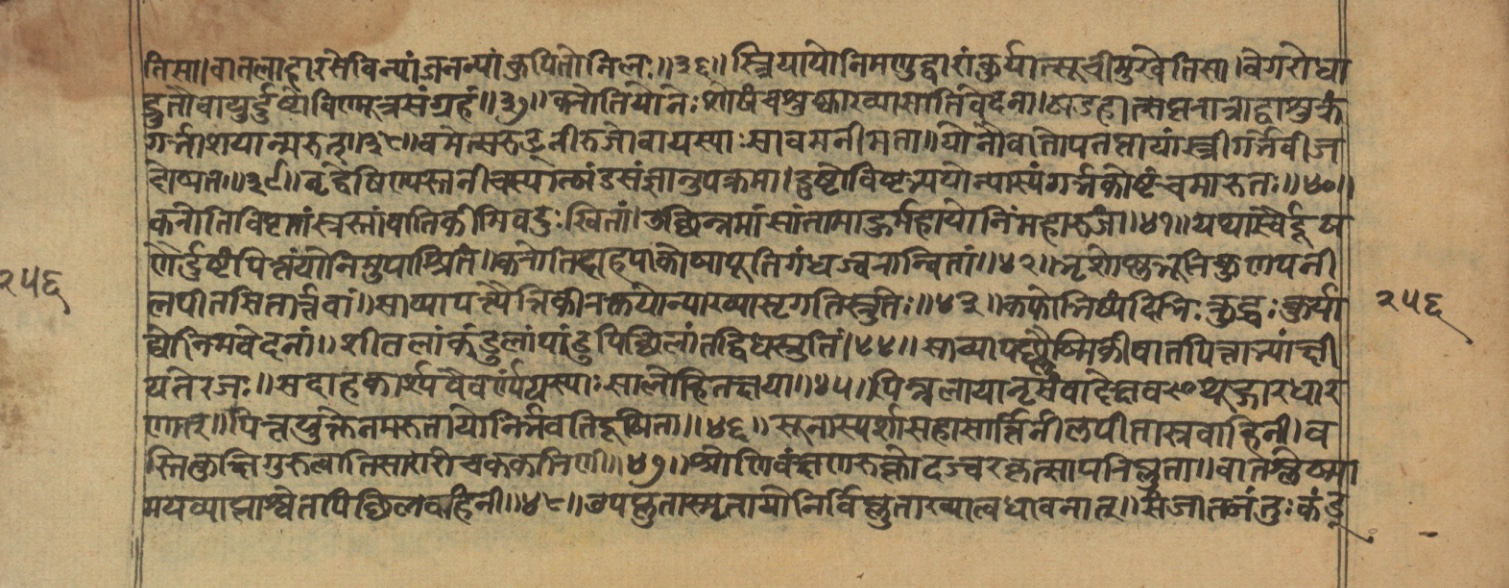 तिसा।वातलाहारसेविन्यांजनन्यांकुपितोनिलः॥३६॥स्त्रियायोनिमणुद्वारांकुर्यात्सूचीमुखेतिसा।वेगरोधा
दृतौवायुर्दुष्टोविण्मूत्रसंग्रहं॥३७॥करोतियोनेःशोषंचशुष्काख्यासातिवेदना।षडहात्सप्तरात्राद्वाशुक्रं
गर्भाशयान्मरुत्॥३८॥वमेत्सरुङ्नीरुजोवायस्याःसावमनीमता॥योनौवातोपतप्तायांस्त्रीगर्भेबीज
दोषतः॥३९॥नृद्वेषिण्यस्तनीचस्यात्षंडसंज्ञानुपक्रमा।दुष्टोविष्टभ्ययोन्यास्यंगर्भकोष्टंचमारुतः॥४०॥
करोतिविवृतांस्रस्तांवातिकीमिवदुःखितां।उछिन्नमांसांतामाहुर्महायोनिंमहारुजां॥४१॥यथास्वैर्दूष
णैर्दुष्टंपित्तंयोनिमुपाश्रितं।करोतिदाहपाकोषापूतिगंधज्वरान्वितां॥४२॥भृशोस्मभूरिकुणपनी
लपीतसितार्त्तवां॥साव्यापत्पैत्तिकीरक्तयोन्याख्यासृगतिस्रुतेः॥४३॥कफोभिष्यंदिभिःक्रुद्धःकुर्या
द्योनिमवेदनां॥शीतलांकंडुलांपांडुपिछिलांतद्विधस्रुतिं।४४॥साव्यापछ्लैष्मिकीवातपित्ताभ्यांक्षी
यतेरजः॥सदाहकार्श्यवैवर्ण्यंयस्याःसालोहितक्षया॥४५॥पित्तलायानृसंवादेक्षवथूद्गारधार
णात्॥पित्तयुक्तेनमरुतायोनिर्भवतिदूषिता॥४६॥सूनास्पर्शासहासार्त्तिनीलपीतास्रवाहिनी।व
स्तिकुक्षिगुरुत्वातिसारारोचककारिणी॥४७॥श्रोणिवंक्षणरुक्तोदज्वरकृत्सापरिप्लुता॥वातश्लेष्मा
मयव्याप्ताश्वेतपिछिलवाहिनी॥४८॥उपप्लुतास्मृतायोनिर्विप्लुताख्यात्वधावनात्॥संजातजंतुःकंडू
२५६
२५६